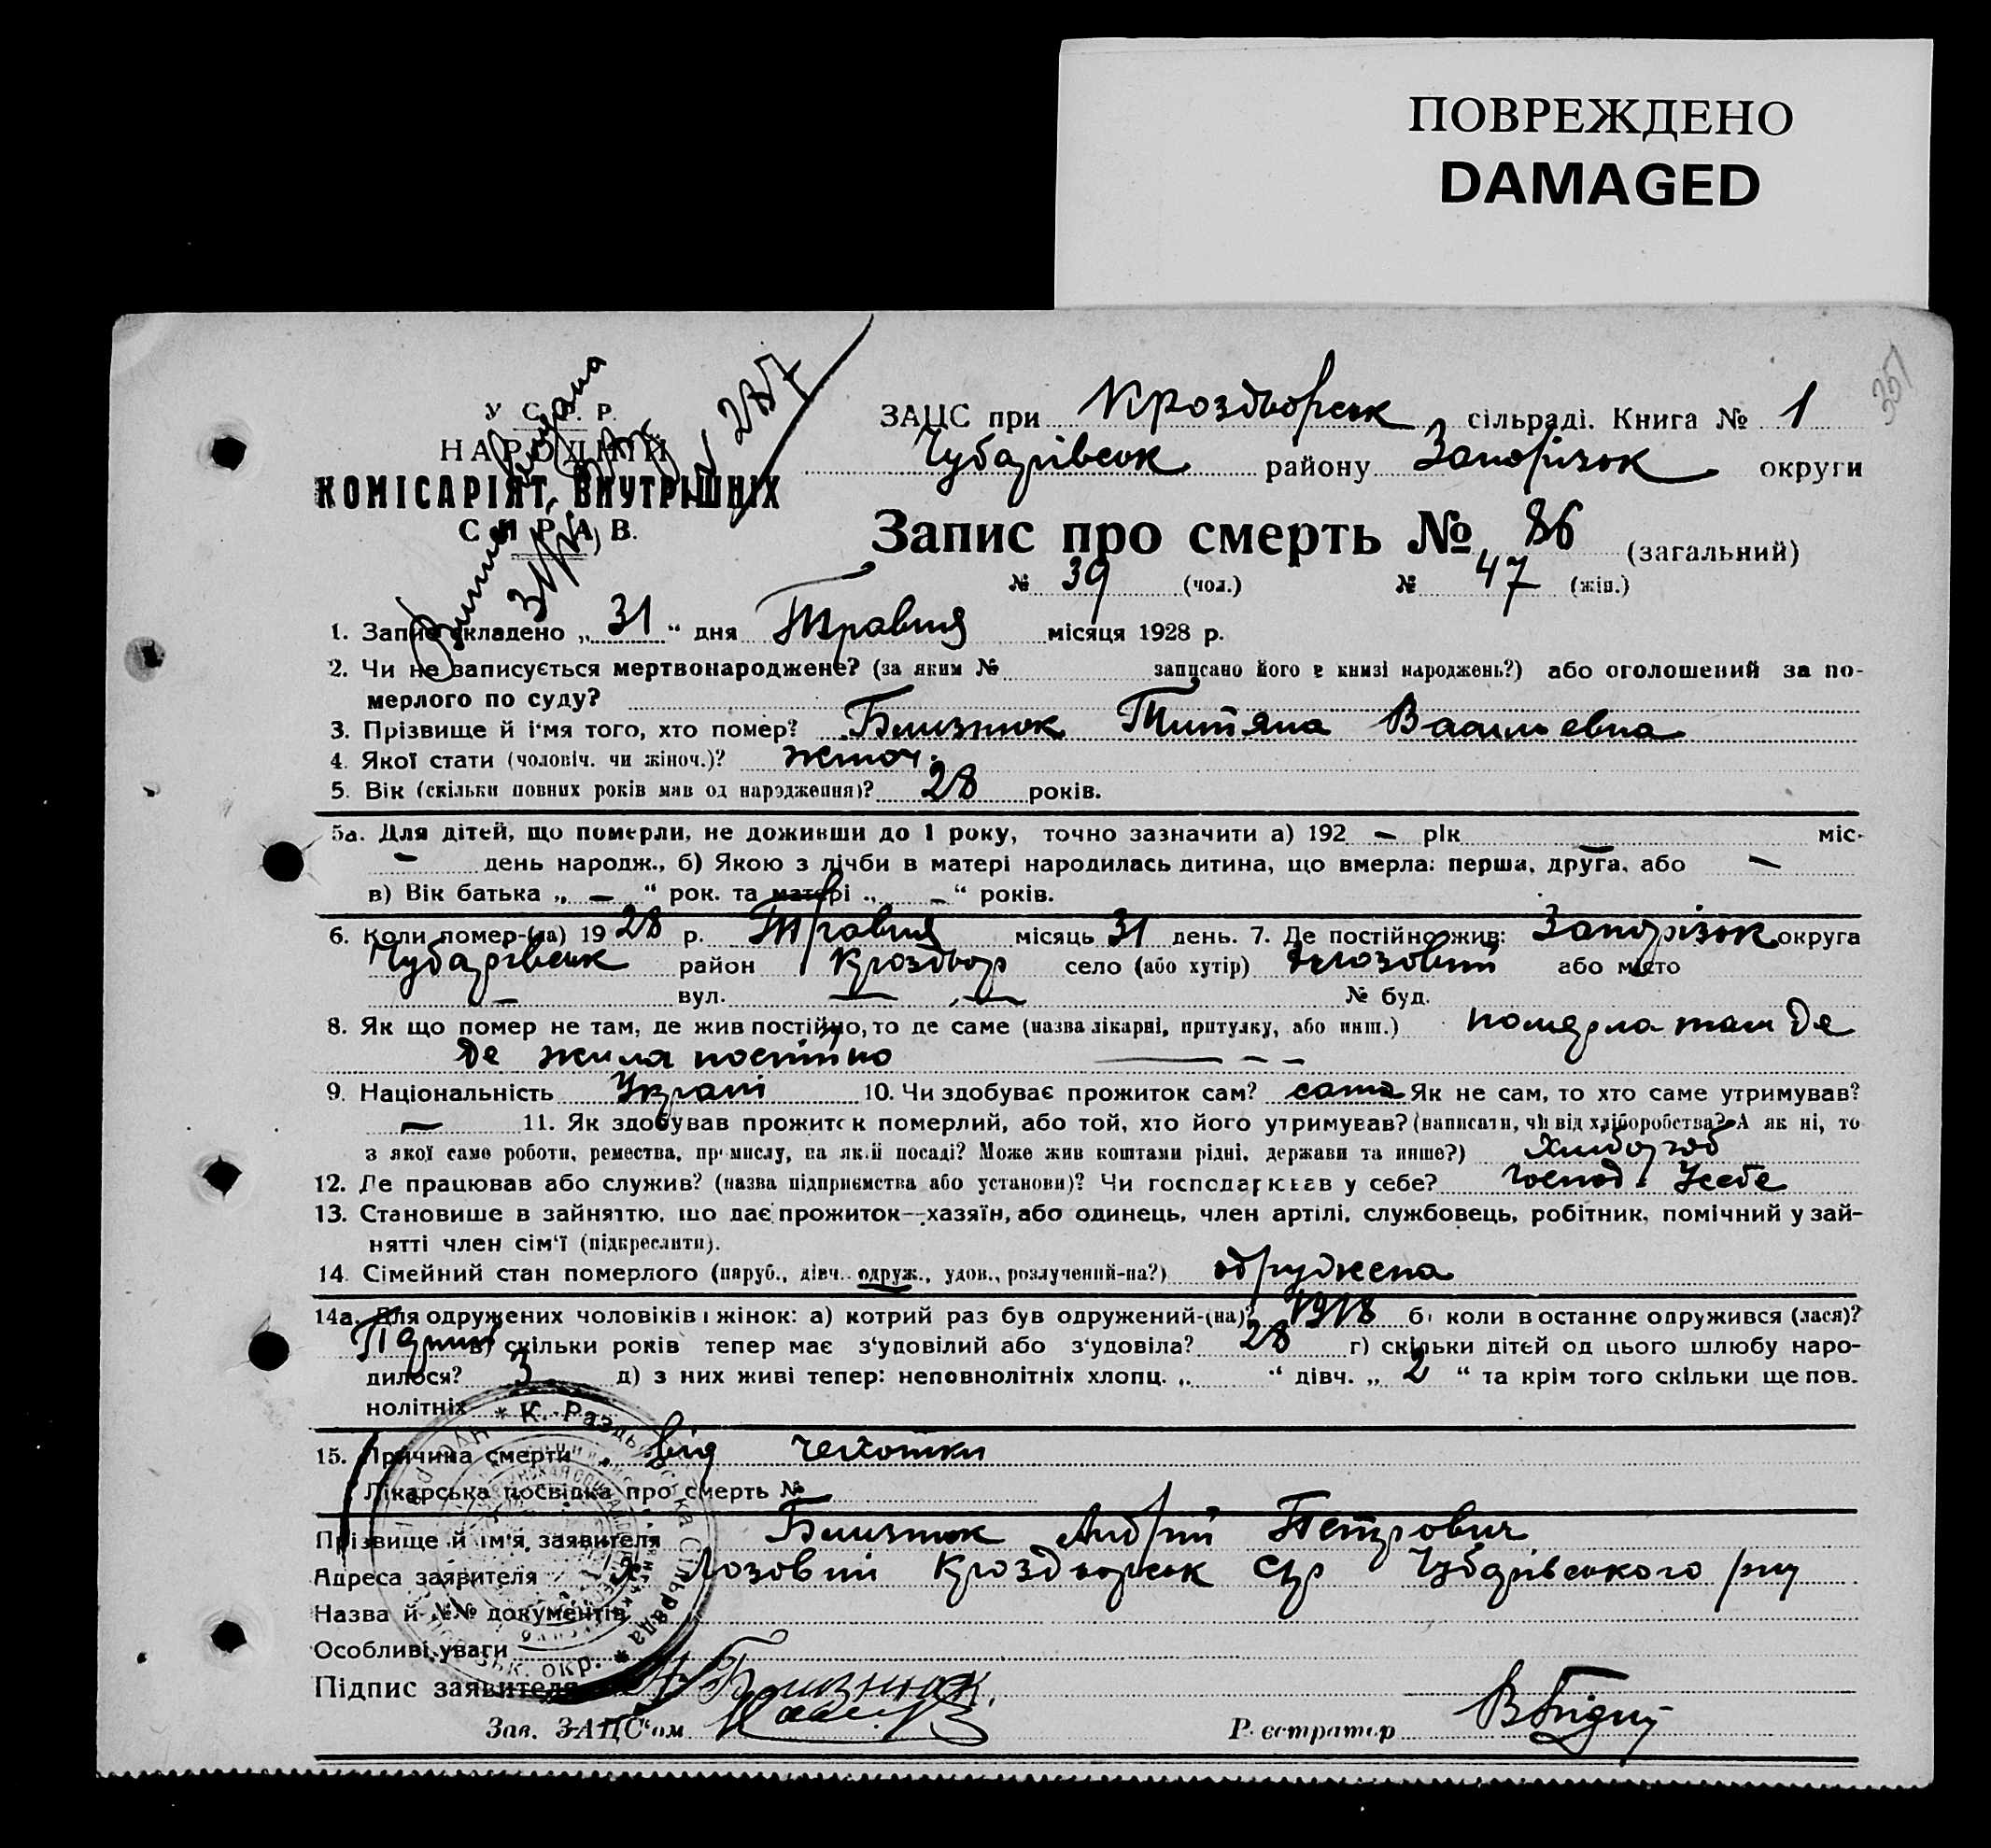 ПОВРЕЖДЕНО
DAMAGED
351
У С. Р. Р.
НАРОДНИЙ
КОМІСАРІЯТ ВНУТРІШНІХ
СПРАВ.
287
ЗАЦС при Кроздворськ сільраді. Книга № 1
Чубарівськ району Запорізьк округи
Запис про смерть № 86 (загальний)
№ 39 (чол.) № 47 (жін.)
1. Запис складено „ 31 “ дня Травня місяця 1928 р.
2. Чи не записується мертвонароджене? (за яким № записано його в книзі народжень?) або оголошений за по-
мерлого по суду?
3. Прізвище й і'мя того, хто помер? Близнюк Титяна Васильевна
4. Якої стати (чоловіч. чи жіноч.)? жіноч.
5. Вік (скільки повних років мав од народження)? 28 років.
5а. Для дітей, що померли, не доживши до 1 року, точно зазначити а) 192 — рік міс-
— день народж., б) Якою з лічби в матері народилась дитина, що вмерла: перша, друга, або —
в) Вік батька „ — “ рок. та матері „ — “ років.
6. Коли помер-(ла) 19 28 р. Травня місяць 31 день. 7. Де постійно жив: Запорізьк округа
Чубарівськ район Кроздвор село (або хутір) Лозовий або місто
— вул. — , — № буд.
8. Як що помер не там, де жив постійно, то де саме (назва лікарні, притулку, або инш.) померла там де
де жила постійно — – –
9. Національність Украї 10. Чи здобував прожиток сам? сама Як не сам, то хто саме утримував?
— 11. Як здобував прожиток померлий, або той, хто його утримував? (написати, чи від хліборобства? А як ні, то
з якої саме роботи, ремества, промислу, на якій посаді? Може жив коштами рідні, держави та инше?) Хлібороб
12. Де працював або служив? (назва підприємства або установи)? Чи господарював у себе? господ. Усебе
13. Становище в зайняттю, що дає прожиток—хазяїн, або одинець, член артілі, службовець, робітник, помічний у зай-
нятті член сім'ї (підкреслити).
14. Сімейний стан померлого (паруб., дівч. одруж., удов., розлучений-на?) одружена
14а. Для одружених чоловіків і жінок: а) котрий раз був одружений-(на)? 1918 б) коли востаннє одружився (лася)?
в) скільки років тепер має з'удовілий або з'удовіла? 28 г) скільки дітей од цього шлюбу наро-
дилося? 3 д) з них живі тепер: неповнолітніх хлопц. „ “ дівч. „ 2 “ та крім того скільки ще пов.
нолітніх
15. Причина смерти від чехотки
Лікарська посвідка про смерть №
Прізвище й ім'я, заявителя Близнюк Андрій Петрович
Адреса заявителя х Лозовий Кроздворськ с/р Чубарівського р-ну
Назва й №№ документів
Особливі уваги
* К.-Раздорська Сільрада * окр.
Підпис заявителя А Близнюк.
Зав. ЗАЦС'ом Реєстратор